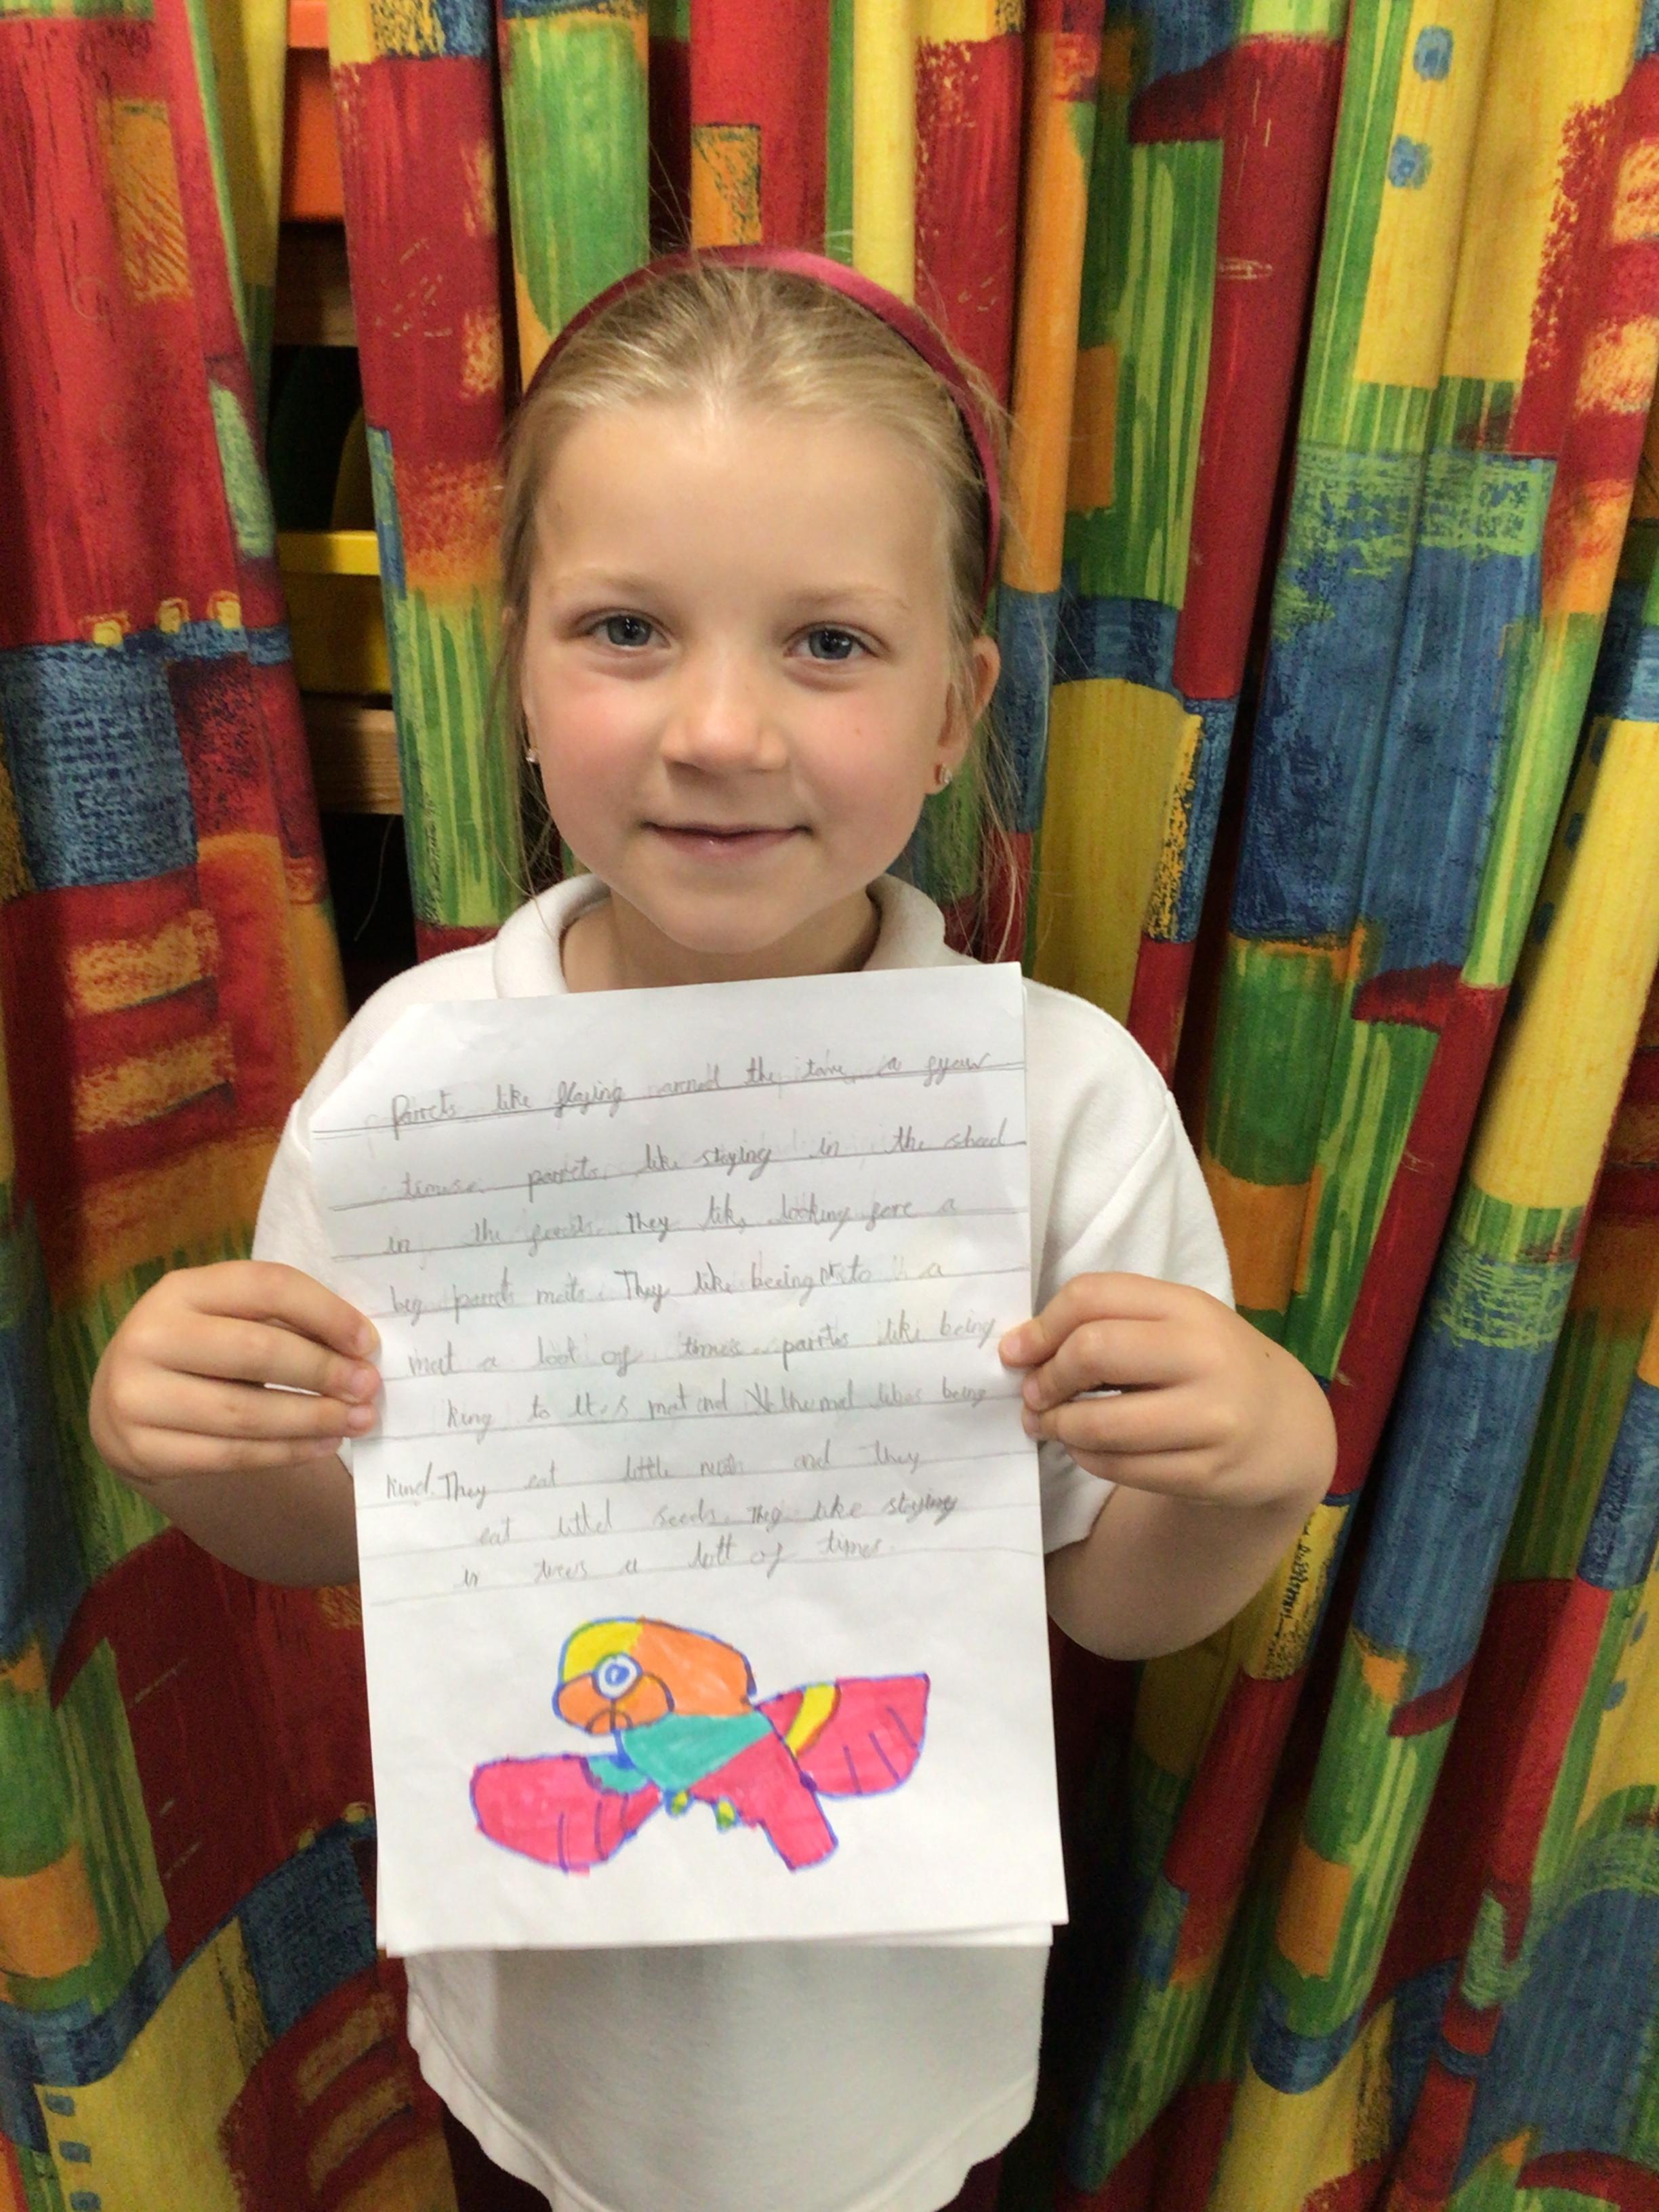 Parrots like flaying arand the tave a
times. parrots. like staying in the shed
in the They like looking fore a
big parrot mats. They like being to a
mat a loot of times parrots like being
king to its mat and the mat likes being
kind. They eat little nuts and they
eat littel seeds. They like staying
in trees a lott of times.